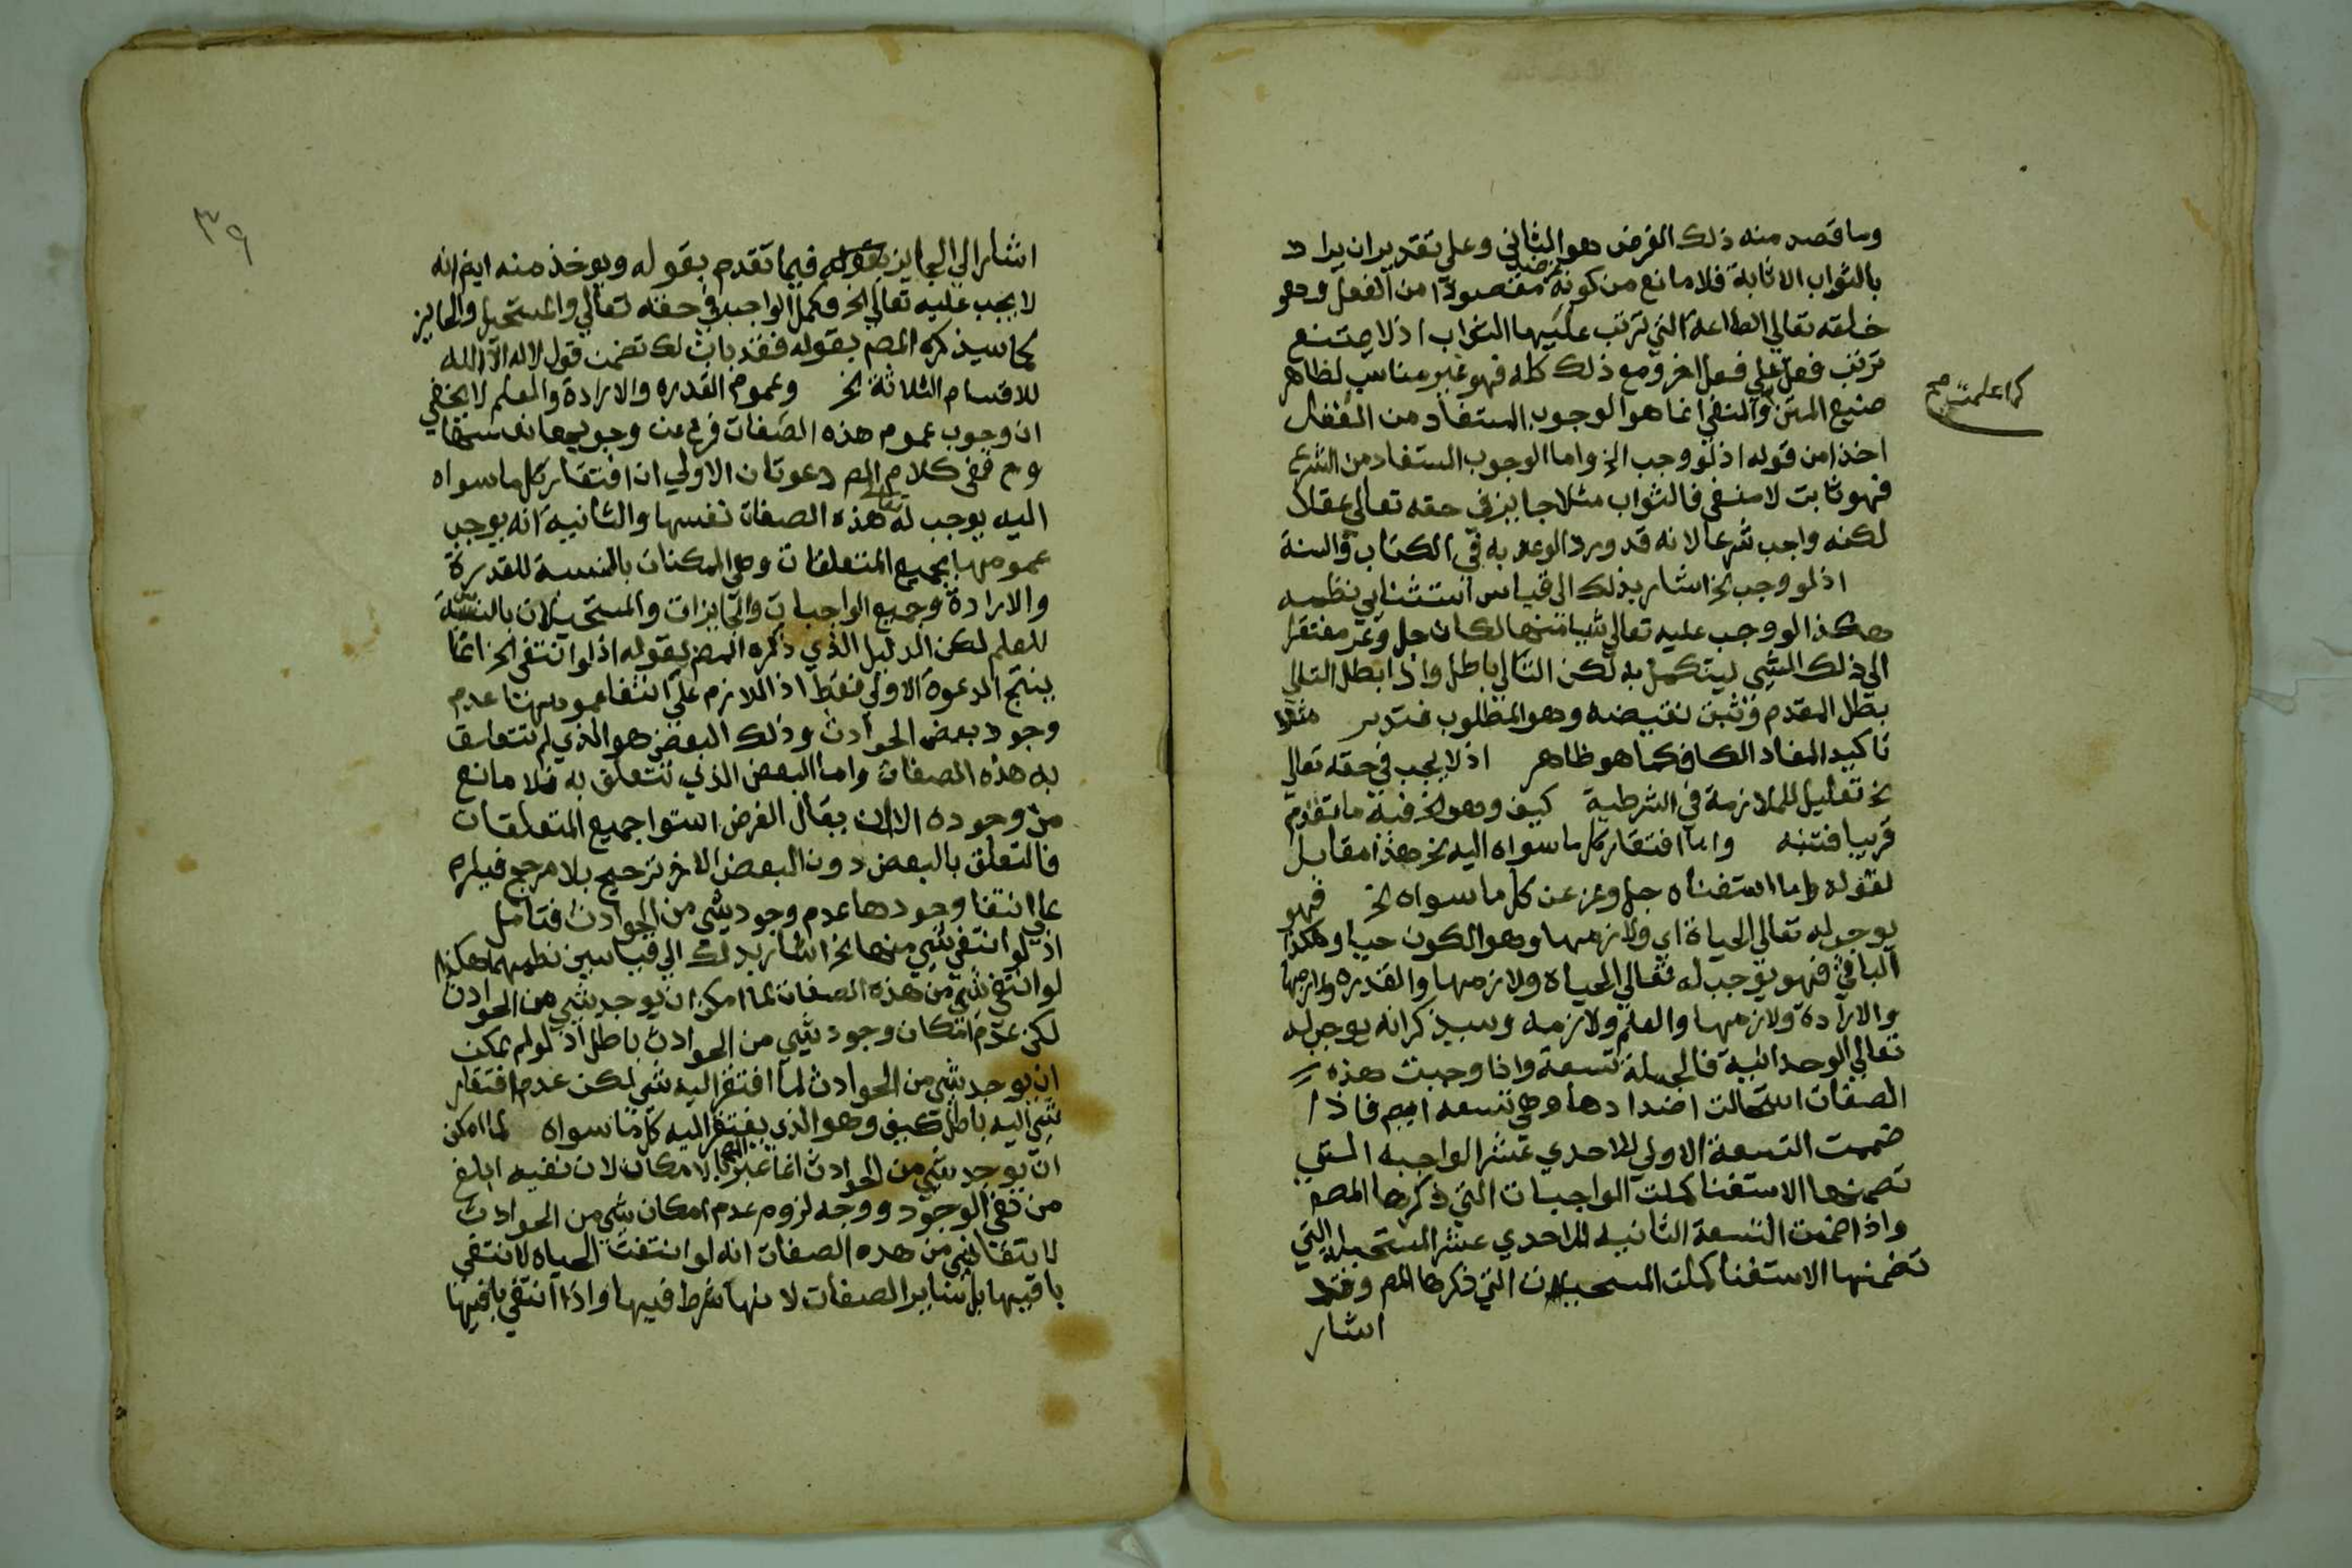 وما قصد منه ذلك الغرض هو الثاني وعلي تقدير ان يراد
بالثواب الاثابة فلا مانع من كونه غرضا مقصودا من الفعل وهو
خلقه تعالي الطاعة التي ترتب عليها الثواب اذ لا يمتنع
ترتب فعل علي فعل اخر ومع ذلك كله فهو غير مناسب لظاهر
صنيع المتن والمنفي انما هو الوجوب المستفاد من العقل
كما علمت صح
اخذا من قوله اذ لو وجب الخ واما الوجوب المستفاد من الشرع
فهو ثابت لا منفي فالثواب مثلا جايز في حقه تعالي عقلا
لكنه واجب شرعا لانه قد ورد الوعد به في الكتاب والسنة
اذ لو وجب الخ اشار بذلك الي قياس استثنايي نظمه
هكذا لو وجب عليه تعالي شيا منها لكان جل وعز مفتقرا
الي ذلك الشي ليتكمل به لكن التالي باطل واذا بطل التالي
بطل المقدم وثبت نقيضه وهو المطلوب فتدبر مثلا
تاكيد المفاد الكاف كما هو ظاهر اذ لا يجب في حقه تعالي
الخ تعليل للملازمة في الشرطية كيف وهو الخ فيه ما تقدم
قريبا فتنبه واما افتقار كل ما سواه اليه الخ هذا مقابل
لقوله واما استغناه جل وعز عن كل ما سواه الخ فهو
يوجب له تعالي الحياة اي ولازمها وهو الكون حيا وهكذا
الباقي فهو يوجب له تعالي الحياة ولازمها والقدره ولازمها
والارادة ولازمها والعلم ولازمه وسيذكر انه يوجب له
تعالي الوحدانية فالجملة تسعة واذا وجبت هذه
الصفات استحالت اضدادها وهي تسعة ايض فاذا
ضممت التسعة الاولي للاحدي عشر الواجبه التي
تضمنها الاستغنا كملت الواجبات التي ذكرها المصـ
واذا ضممت التسعة الثانيه للاحدي عشر المستحيله التي
تضمنها الاستغنا كملت المستحيلات التي ذكرها المص وقد
اشار
٣٩
اشار الي الجايز فيما تقدم بقوله ويوخذ منه ايض انه
لا يجب عليه تعالي الخ فكمل الواجب في حقه تعالي والمستحيل والجايز
كما سيذكره المص بقوله فقد بان لك تضمن قول لا اله الا الله
للاقسام الثلاثة الخ وعموم القدره والارادة والعلم لا يخفي
ان وجوب عموم هذه الصفات فرع عن وجوبها نفسها
وح ففي كلام المص دعوتان الاولي ان افتقار كل ما سواه
اليه يوجب له تعالي هذه الصفات نفسها والثانيه انه يوجب
عمومها بجميع المتعلقات وهي الممكنات بالنسبة للقدرة
والارادة وجميع الواجبات والجايزات والمستحيلات بالنسبة
للعلم لكن الدليل الذي ذكره المص بقوله اذ لو انتفي الخ انما
ينتج الدعوة الاولي فقط اذ اللازم علي انتفا عمومها عدم
وجود بعض الحوادث وذلك البعض هو الذي لم تتعلق
به هذه الصفات واما البعض الذي تتعلق به فلا مانع
من وجوده الا ان يقال الفرض استوا جميع المتعلقات
فالتعلق بالبعض دون البعض الاخر ترجيح بلا مرجح فيلزم
علي انتفا وجودها عدم وجود شي من الحوادث فتامل
اذ لو انتفي شي منها الخ اشار بذلك الي قياسين نظمهما هكذا
لو انتفي شي من هذه الصفات لما امكن ان يوجد شي من الحوادث
لكن عدم امكان وجود شي من الحوادث باطل اذ لو لم يمكن
ان يوجد شي من الحوادث لما افتقر اليه شي لكن عدم افتقار
شي اليه باطل كيف وهو الذي يفتقر اليه كل ما سواه لما امكن
ان يوجد شي من الحوادث انما عبر المص بالامكان لان نفيه ابلغ
من نفي الوجود ووجه لزوم عدم امكان شي من الحوادث
لانتفا شي من هذه الصفات انه لو انتفت الحياه لانتفي
باقيها بل ساير الصفات لانها شرط فيها واذا انتفي باقيها